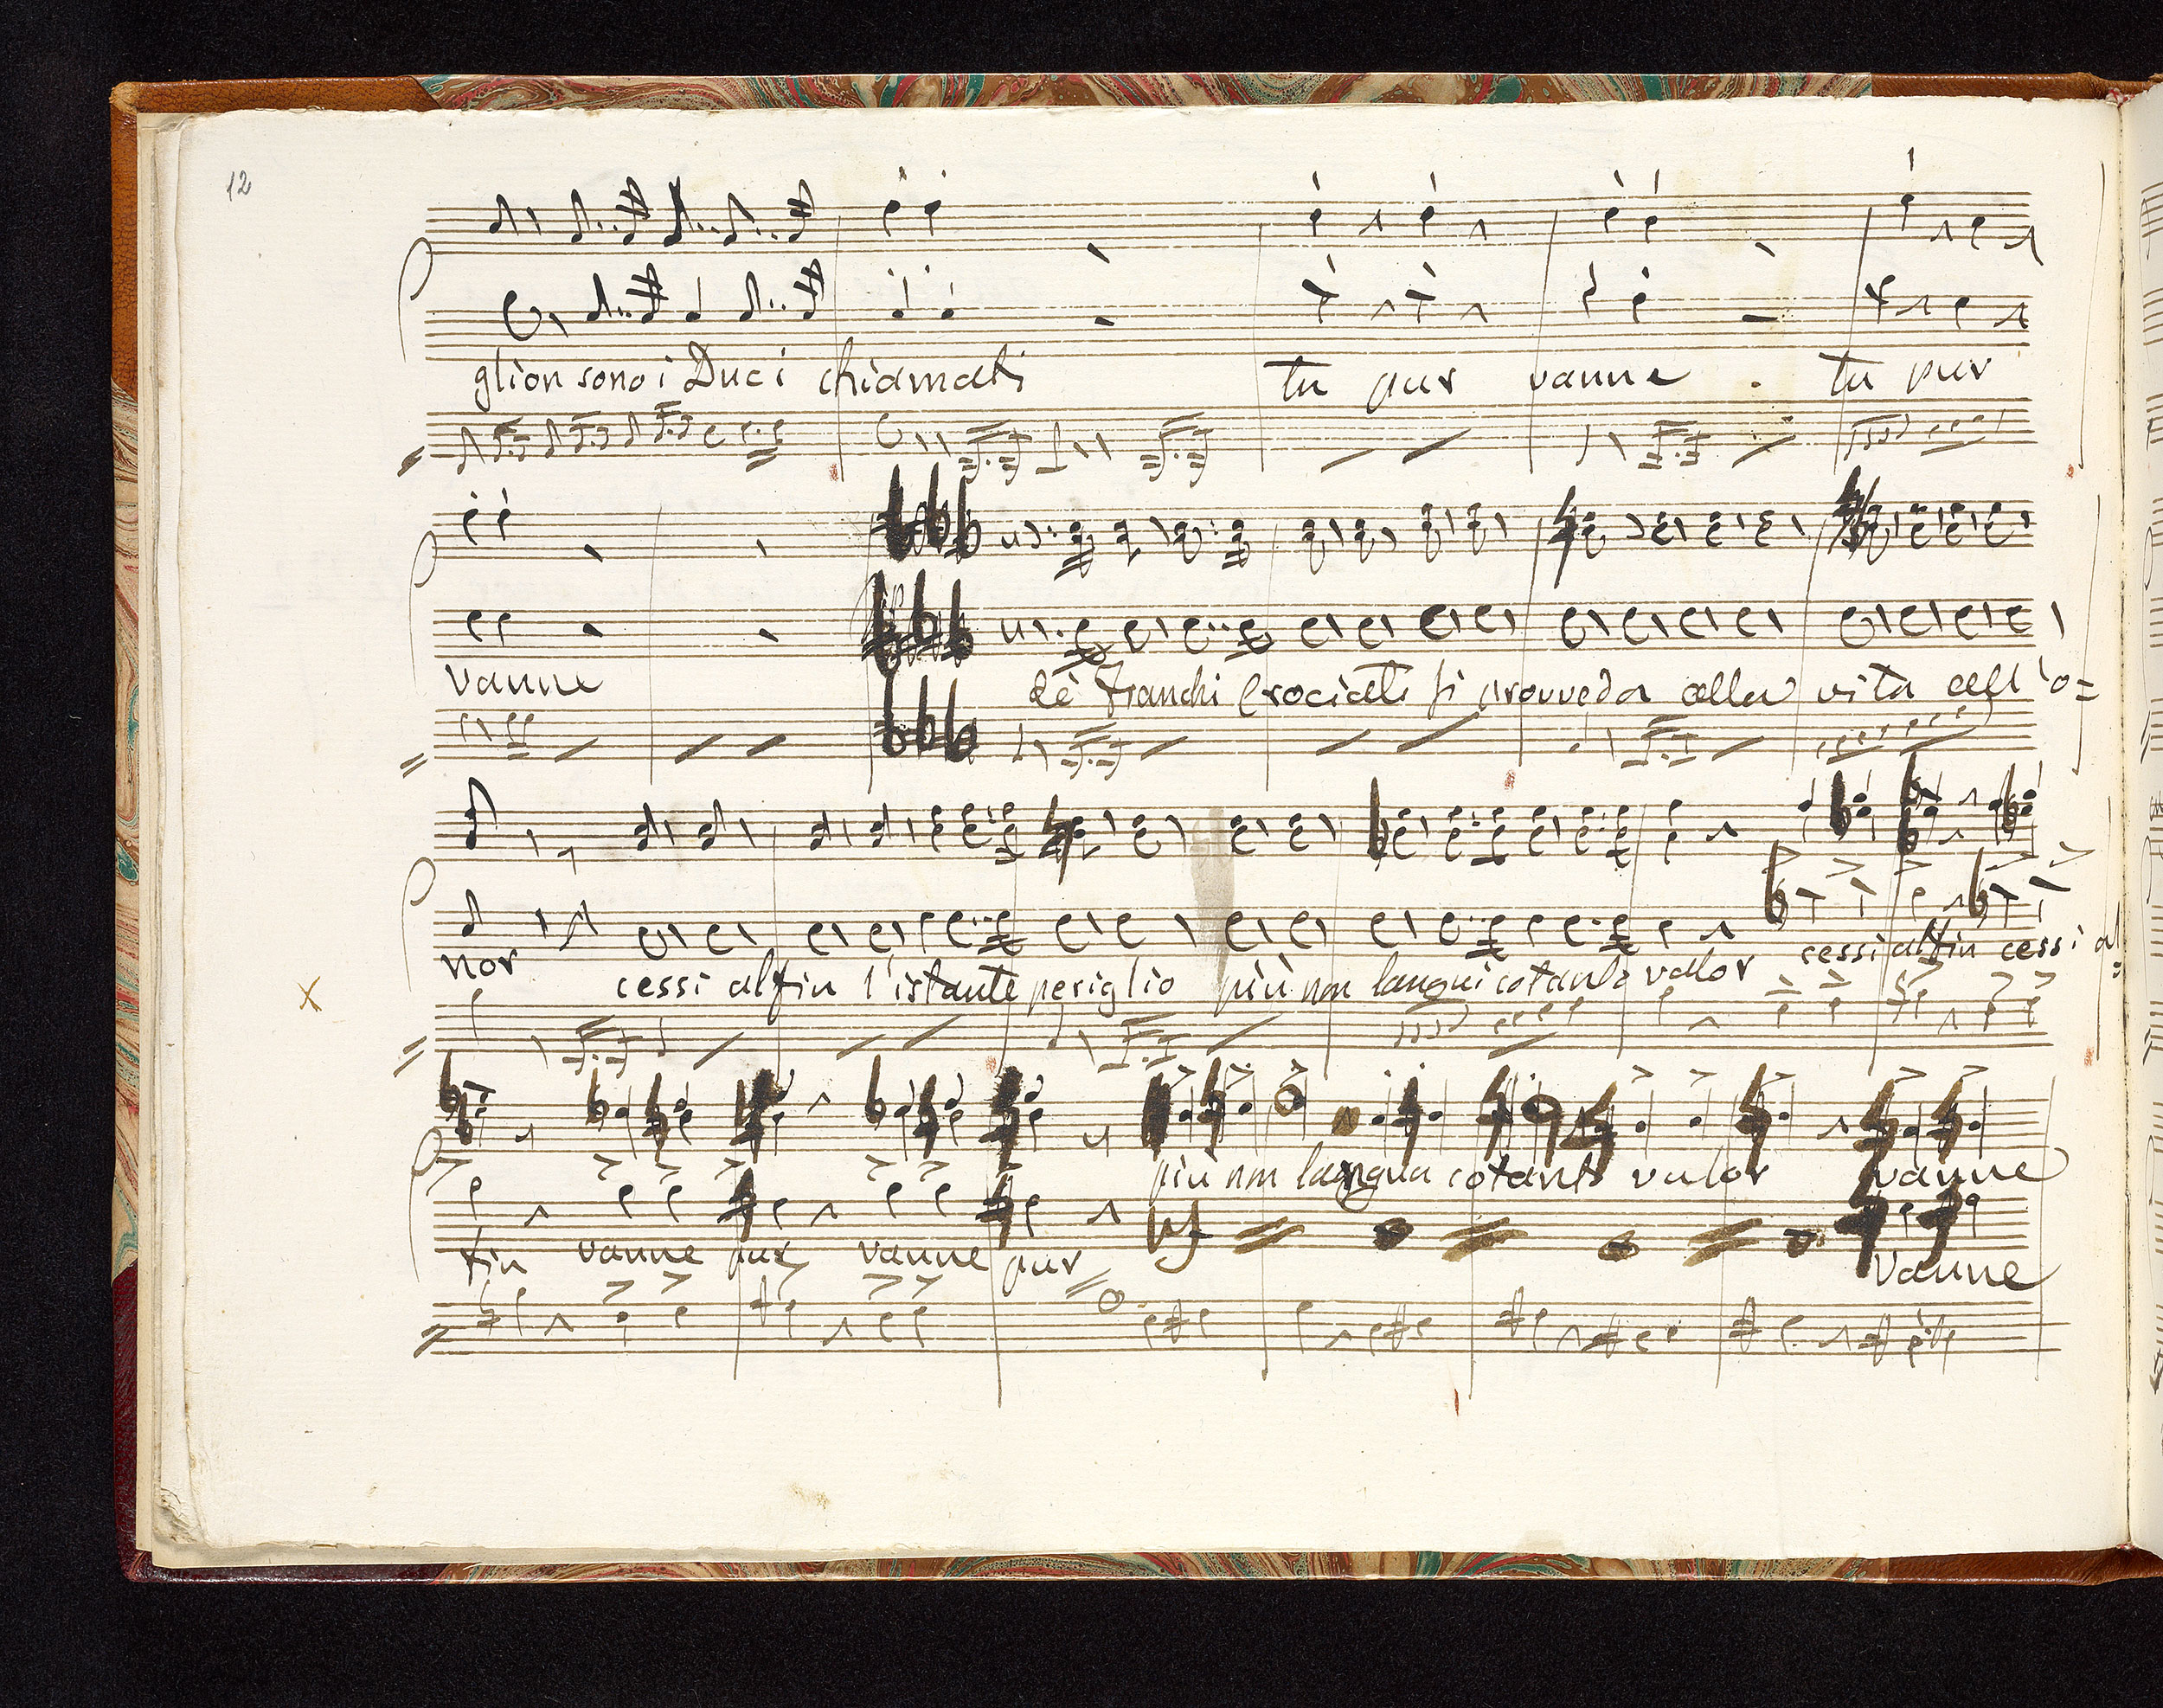 12
glion sono i Duci chiamati tu pur vanne tu pur
vanne de' franchi Crociati si provveda alla vita all'o=
nor cessi alfin l'istante periglio più non langui cotanto valor cessi alfin cessi al=
più non langua cotanto valor vanne
fin vanne pur vanne pur vanne